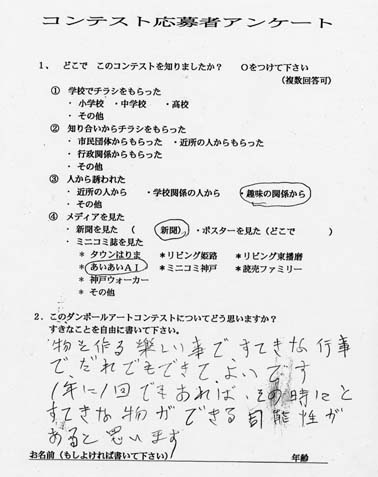 コンテスト応募者アンケート
1、どこで このコンテストを知りましたか？ Oをつけて下さい
（複数回答可）
① 学校でチラシをもらった
・小学校 ・中学校 ・高校
・その他
② 知り合いからチラシをもらった
・市民団体からもらった ・近所の人からもらった
・行政関係からもらった
・その他
③ 人から誘われた
・近所の人から ・学校関係の人から ・趣味の関係から
・その他
④ メディアを見た
・新聞を見た （ 新聞） ・ポスターを見た（どこで ）
・ミニコミ誌を見た
＊ タウンはりま ＊リビング姫路 ＊リビング東播磨
＊ あいあいAI ＊ミニコミ神戸 ＊読売ファミリー
＊ 神戸ウォーカー
＊ その他
2．このダンボールアートコンテストについてどう思いますか？
すきなことを自由に書いて下さい。
物を作る楽しい事ですてきな行事
で、だれでもできて、よいです
1年に1回でもあれば、その時にと
すてきな物ができる可能性が
あると思います
お名前（もしよければ書いて下さい） 年齢